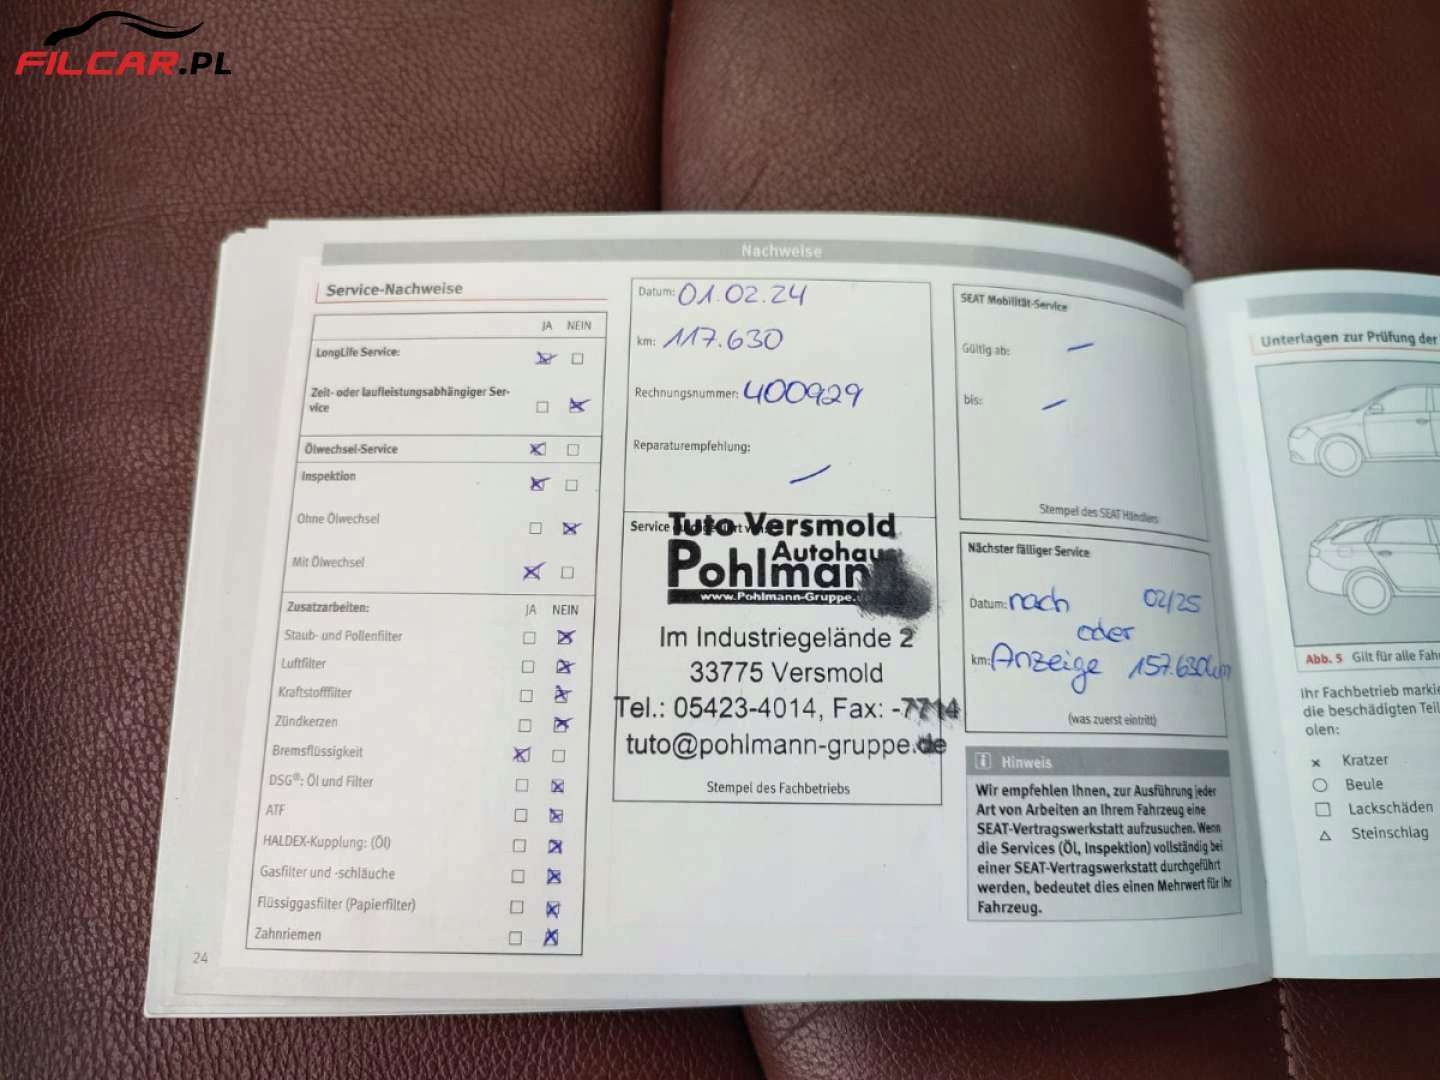 FILCAR.PL
Nachweise
Service-Nachweise
JA NEIN
LongLife Service:
Zeit- oder laufleistungsabhängiger Ser-
vice
Ölwechsel-Service
Inspektion
Ohne Ölwechsel
Mit Ölwechsel
Zusatzarbeiten: JA NEIN
Staub- und Pollenfilter
Luftfilter
Kraftstofffilter
Zündkerzen
Bremsflüssigkeit
DSG®: Öl und Filter
ATF
HALDEX-Kupplung: (Öl)
Gasfilter und -schläuche
Flüssiggasfilter (Papierfilter)
Zahnriemen
24
Datum: 01.02.24
km: 117.630
Rechnungsnummer: 400929
Reparaturempfehlung:
Service
Tuto Versmold
Autohaus
Pohlmann
www.Pohlmann-Gruppe.
Im Industriegelände 2
33775 Versmold
Tel.: 05423-4014, Fax: -7714
tuto@pohlmann-gruppe.de
Stempel des Fachbetriebs
SEAT Mobilität-Service
Gültig ab:
bis:
Stempel des SEAT Händlers
Nächster fälliger Service
Datum: nach 02/25
oder
km: Anzeige 157.630km
(was zuerst eintritt)
i Hinweis
Wir empfehlen Ihnen, zur Ausführung jeder
Art von Arbeiten an Ihrem Fahrzeug eine
SEAT-Vertragswerkstatt aufzusuchen. Wenn
die Services (Öl, Inspektion) vollständig bei
einer SEAT-Vertragswerkstatt durchgeführt
werden, bedeutet dies einen Mehrwert für Ihr
Fahrzeug.
Unterlagen zur Prüfung der
Abb. 5 Gilt für alle
Ihr Fachbetrieb
die beschädigten
olen:
Kratzer
Beule
Lackschäden
Steinschlag